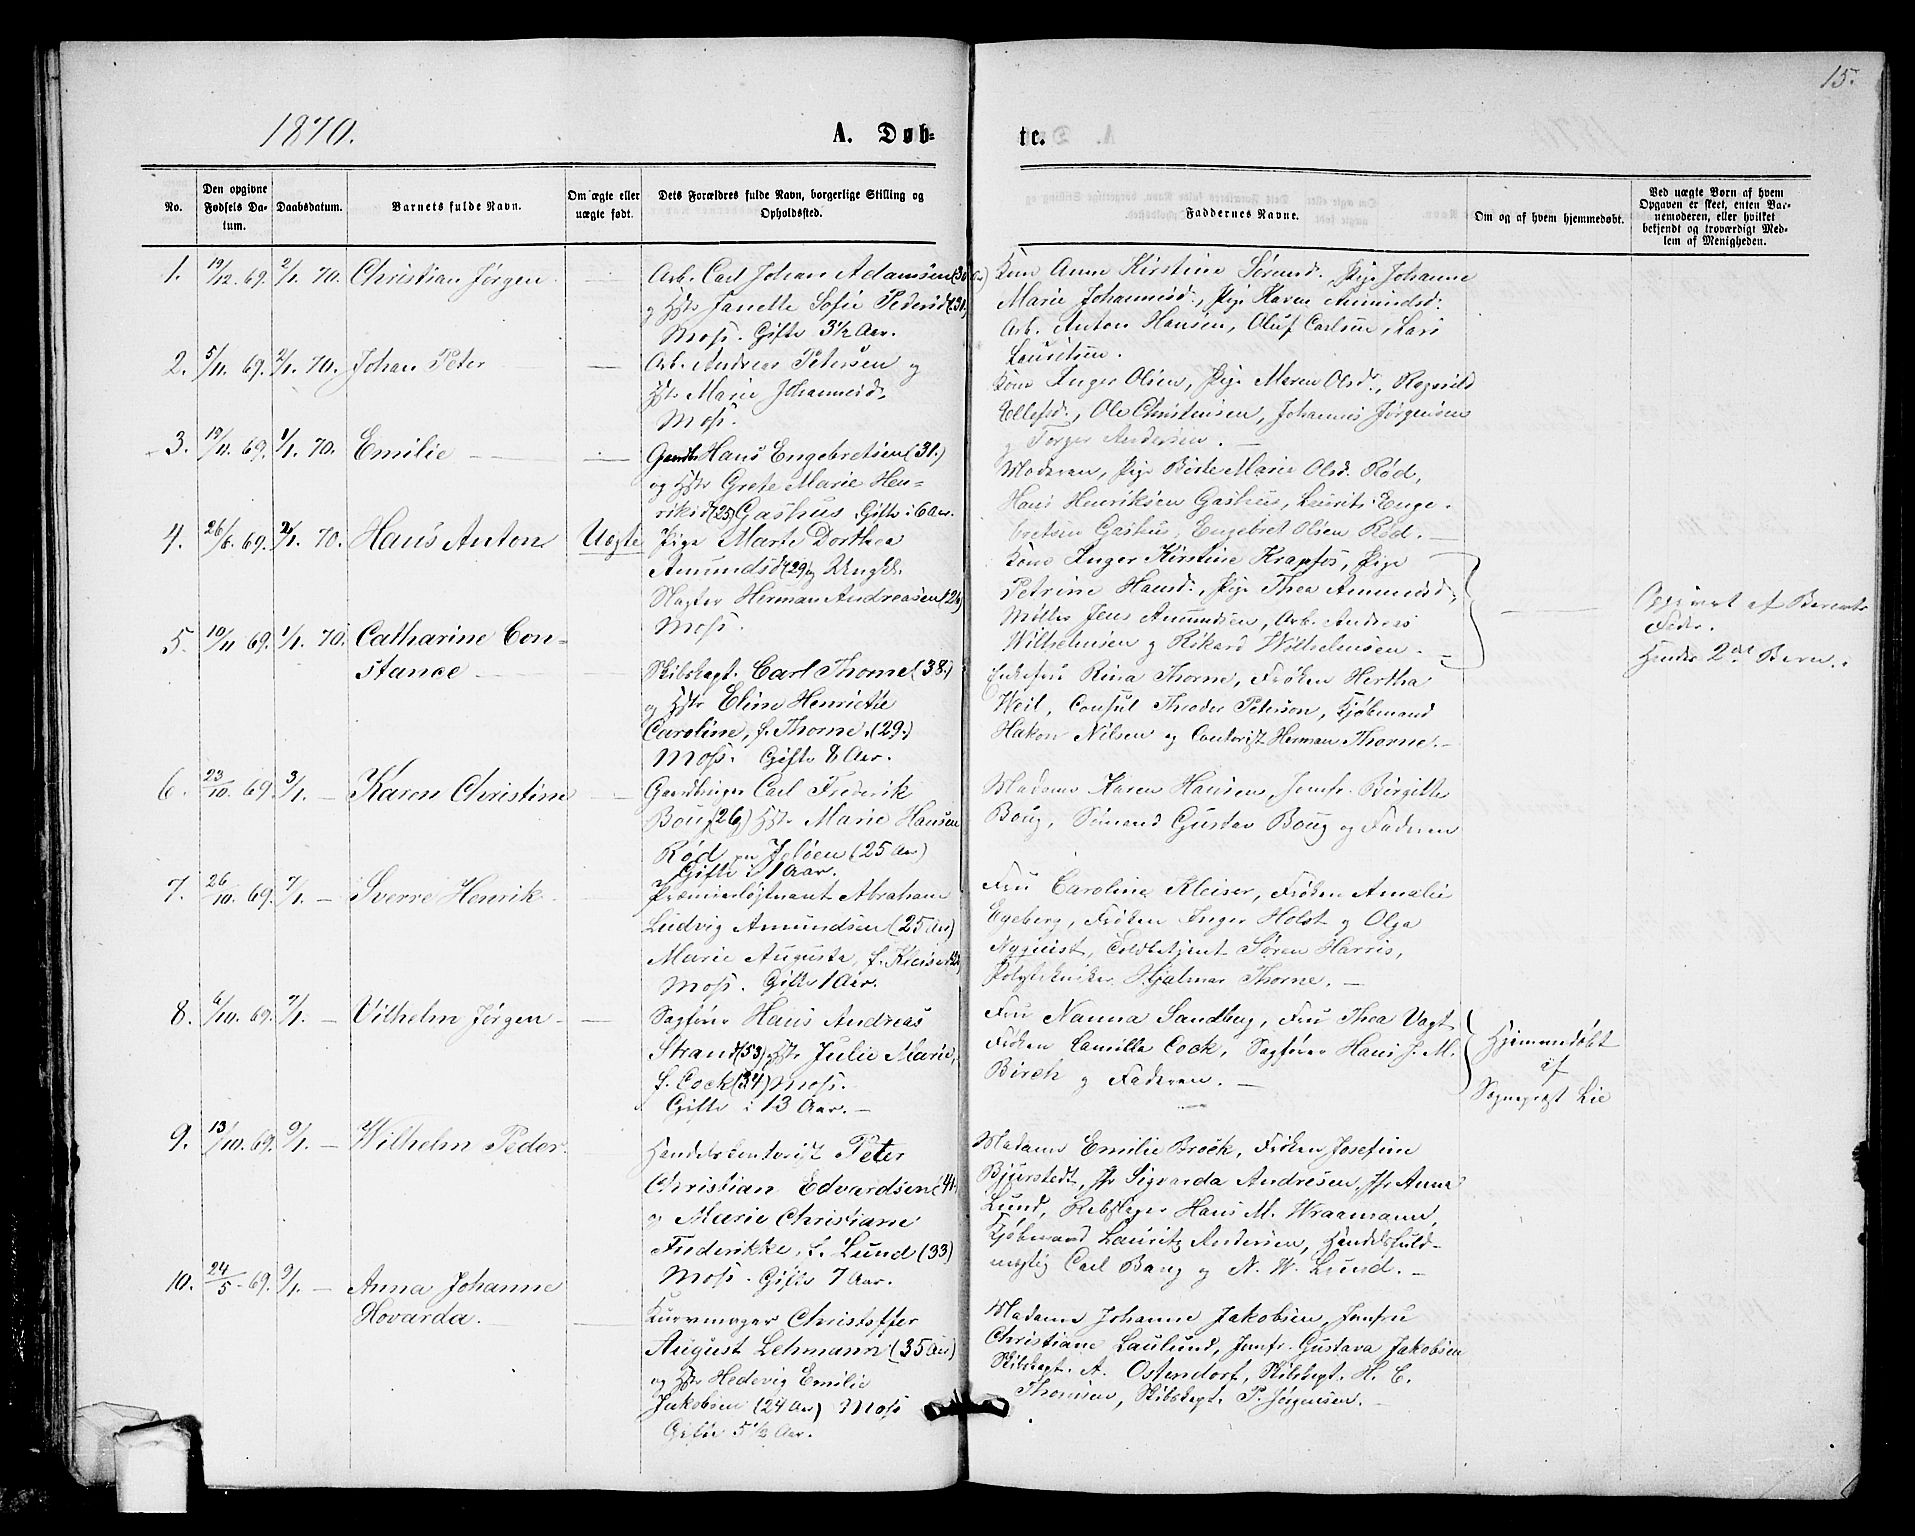 15.
1870.
A. Døb-
te.
No.
Den opgivne Fødsels Da-
tum.
Daabsdatum.
Barnets fulde Navn.
Om ægte eller
uægte født.
Dets Forældres fulde Navn, borgerlige Stilling og
Opholdssted.
Faddernes Navne.
Om og af hvem hjemmedøbt.
Ved uægte Børn af hvem
Opgaven er skeet, enten Bar-
nemoderen, eller hvilket
bekjendt og troværdigt Med-
lem af Menigheden.
1. 19/12. 69. 2/1. 70. Christian Jørgen
Arb. Carl Johan Adamsen
og Hstr Janette Sofie Pedersd (31.
Moss. Gifte 3½ Aar.
Kone Anne Kirstine Sørensd. Pige Johanne
Marie Johannesd., Pige Karen Amundsd.
Arb. Anton Hansen, Oluf Carlsen, Lars
Lauritsen.
2. 5/11. 69. 2/1. 70. Johan Peter
Arb. Andreas Petersen og
Hstr Marie Johannesd.
Moss.
Kone Inger Olsen, Pige Maren Olsd., Ragnild
Ellefsd., Ole Christensen, Johannes Jørgensen
og Torger Andersen. —
3. 19/11. 69. 1/1. 70. Emilie
Gaardbr Hans Engebretsen (31.)
og Hstr Grete Marie Hen-
riksd (25) Gashus. Gifte i 6 Aar.
Moderen, Pige Berte Marie Olsd. Rød,
Hans Henriksen Gashus, Laurits Enge-
bretsen Gashus, Engebret Olsen Rød. —
4. 26/6. 69. 2/1. 70. Hans Anton Uægte
Pige Marte Dorthea
Amundsd (29) og Ungkl.
Slagter Herman Andreasen (26)
Moss.
Kone Inger Kirstine Krapfos, Pige
Petrine Hansd., Pige Thea Amundsd.,
Møller Jens Amundsen, Arb. Andreas
Wilhelmsen og Rikard Wilhelmsen. —
Opgivet af Barnets
Fader.
Hendes 2det Barn.
5. 10/11. 69. 1/1. 70. Catharine Con-
stance
Skibskapt. Carl Thorne (38.)
og Hstr Eline Henriette
Caroline, f. Thorne. (29.)
Moss. Gifte 8 Aar.
Enkefru Rina Thorne, Frøken Hertha
Weil, Consul Theodor Peterson, Kjøbmand
Hakon Nilsen og Contorist Herman Thorne. —
6. 23/10. 69. 3/1. — Karen Christine
Gaardbruger Carl Frederik
Boug (26) Hstr Marie Hansen
Rød paa Jeløen (25 Aar)
Gifte i 1 Aar.
Madame Karen Hansen, Jomfr. Birgitte
Boug, Sömand Gustav Boug og Faderen
7. 26/10. 69. 7/1. — Sverre Henrik
Præmierløjtnant Abraham
Ludvig Amundsen (25 Aar)
Marie Augusta, f. Kleiser
Moss. Gifte 1 Aar.
Fru Caroline Kleiser, Frøken Amalie
Egeberg, Frøken Inger Holst og Olga
Nyquist, Toldbetjent Søren Harris,
Polytekniker Hjalmar Thorne. —
8. 6/10. 69. 7/1. — Vilhelm Jørgen
Sagfører Hans Andreas
Strand (53) Hstr Julie Marie,
f. Cock (34) Moss.
Gifte i 13 Aar. —
Fru Nanna Sandberg, Fru Thea Vogt
Frøken Camilla Cock, Sagfører Hans J. M.
Birch og Faderen. —
Hjemmedøbt
af
Sognepræst Lie
9. 13/10. 69. 9/1. — Wilhelm Peder
Handelskontorist Peter
Christian Edvardsen (41.
og Marie Christiane
Frederikke, f. Lund (33)
Moss. Gifte 7 Aar.
Madame Emilie Brock, Frøken Josefine
Bjurstedt, Jfr Sigvarda Andresen, Jfr Anna
Lund, Rebslager Hans M. Wraamann,
Kjøbmand Lauritz Andersen, Handelsfuld-
mægtig Carl Bang og N. W. Lund. —
10. 24/5. 69. 9/1. — Anna Johanne
Hovarda.
Kurvmager Christoffer
August Lehmann (35 Aar)
og Hstr Hedevig Emilie
Jakobsen (24 Aar) Moss
Gifte 5½ Aar.
Madame Johanne Jakobsen, Jomfru
Christiane Laulund, Jomfr. Gustava Jakobsen
Skibskapt. A. Ostendorf, Skibskapt. H. C.
Thomsen, Skibskapt. P. Jørgensen. —